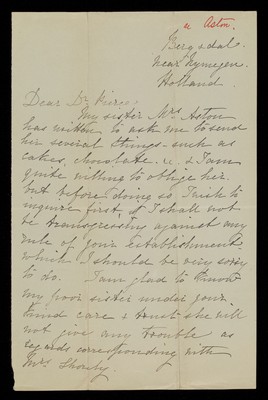 Aston.
Berg & dal.
near Nymegen.
Holland.
Dear Dr
My sister Mrs Aston
has written to ask me to send
her several things such as
cakes, chocolate, & I am
quite willing to oblige her,
but before doing so I wish to
inquire first, if I shall not
be transgressing against any
rule of your establishment
which I should be very sorry
to do. I am glad to know
my poor sister under your
kind care & trust she will
not give any trouble as
regards corresponding with
Mrs